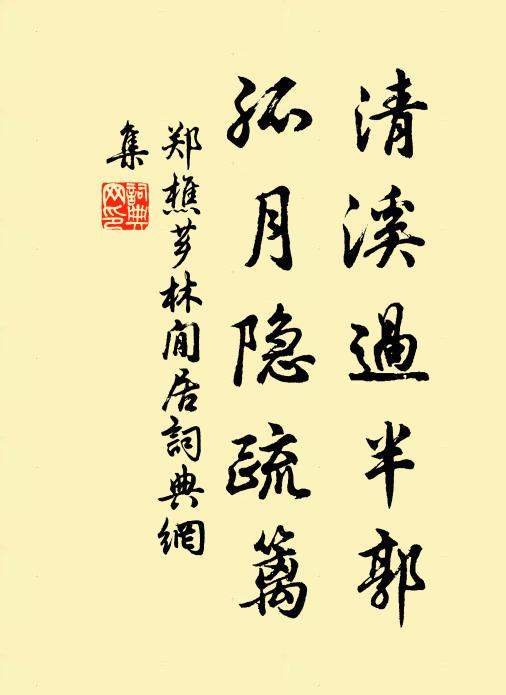 清溪過半郭
孤月隐疏篱
郑樵芗林閒居詞典網
集
詞典网印